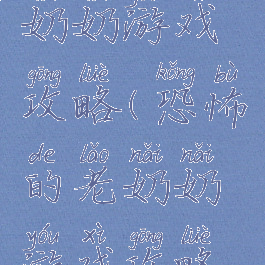 奶奶游戏
gōng lüè kǒng bù
攻略(恐怖
de lǎo nǎi nǎi
的老奶奶
yóu xì gōng lüè
游戏攻略